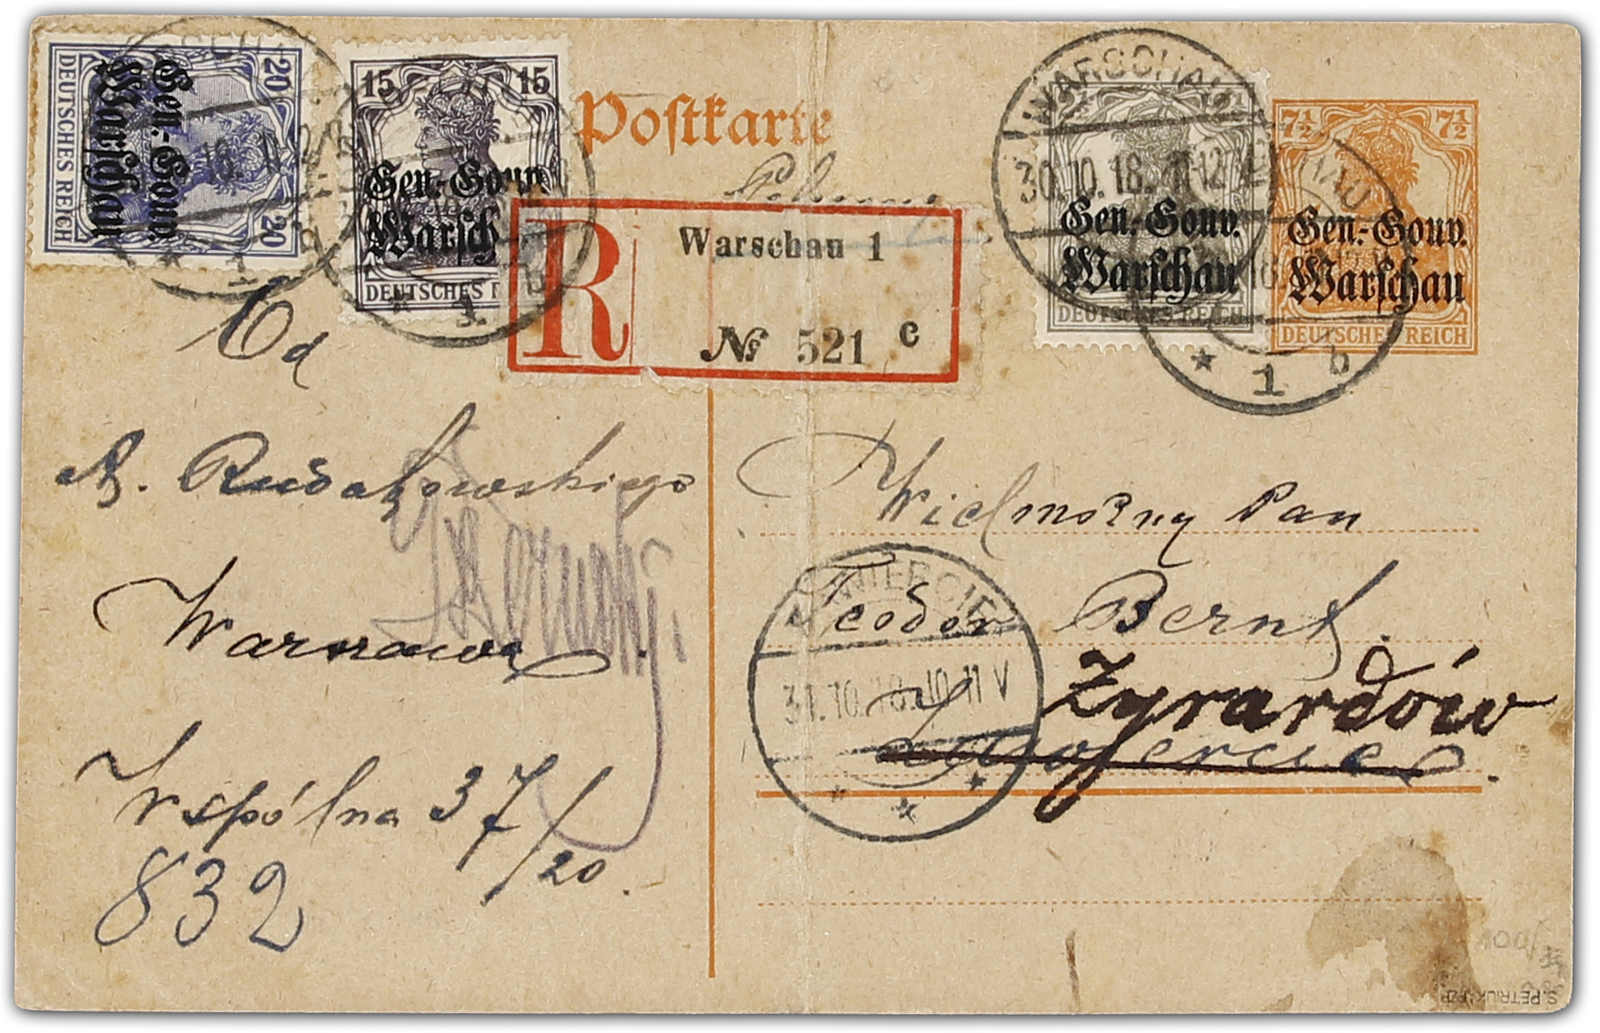 20 20
Gen.-Gouv.
Warschau
DEUTSCHES REICH
15 15
Gen.-Gouv.
Warsch
DEUTSCHES
Postkarte
WARSCHAU
30.10.18. 11-12
1 b
Gen.-Gouv.
Warschau
DEUTSCHES REICH
7½ 7½
Gen.-Gouv.
Warschau
DEUTSCHES REICH
R
Warschau 1
№ 521 c
Od
Rudakowskiego
Warszawa.
Wspólna 37/20.
832
Wielmożny Pan
Teodor Bernt.
Żyrardów
31.10.18. 10-11 V
S. PETRIUK PZF